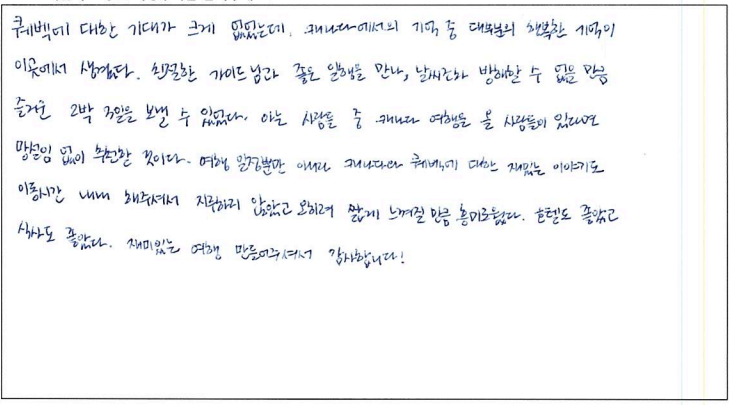 퀘벡에 대한 기대가 크게 없었는데, 캐나다에서의 기억 중 대부분의 행복한 기억이
이곳에서 생겼다. 친절한 가이드님과 좋은 일행들 만나, 날씨조차 방해할 수 없을 만큼
즐거운 2박 3일을 보낼 수 있었다. 아는 사람들 중 캐나다 여행을 올 사람들이 있다면
망설임 없이 추천할 것이다. 여행 일정뿐만 아니라 캐나다와 퀘벡에 대한 재밌는 이야기도
이동시간 내내 해주셔서 지루하지 않았고 오히려 짧게 느껴질 만큼 흥미로웠다. 호텔도 좋았고
식사도 좋았다. 재미있는 여행 만들어주셔서 감사합니다!